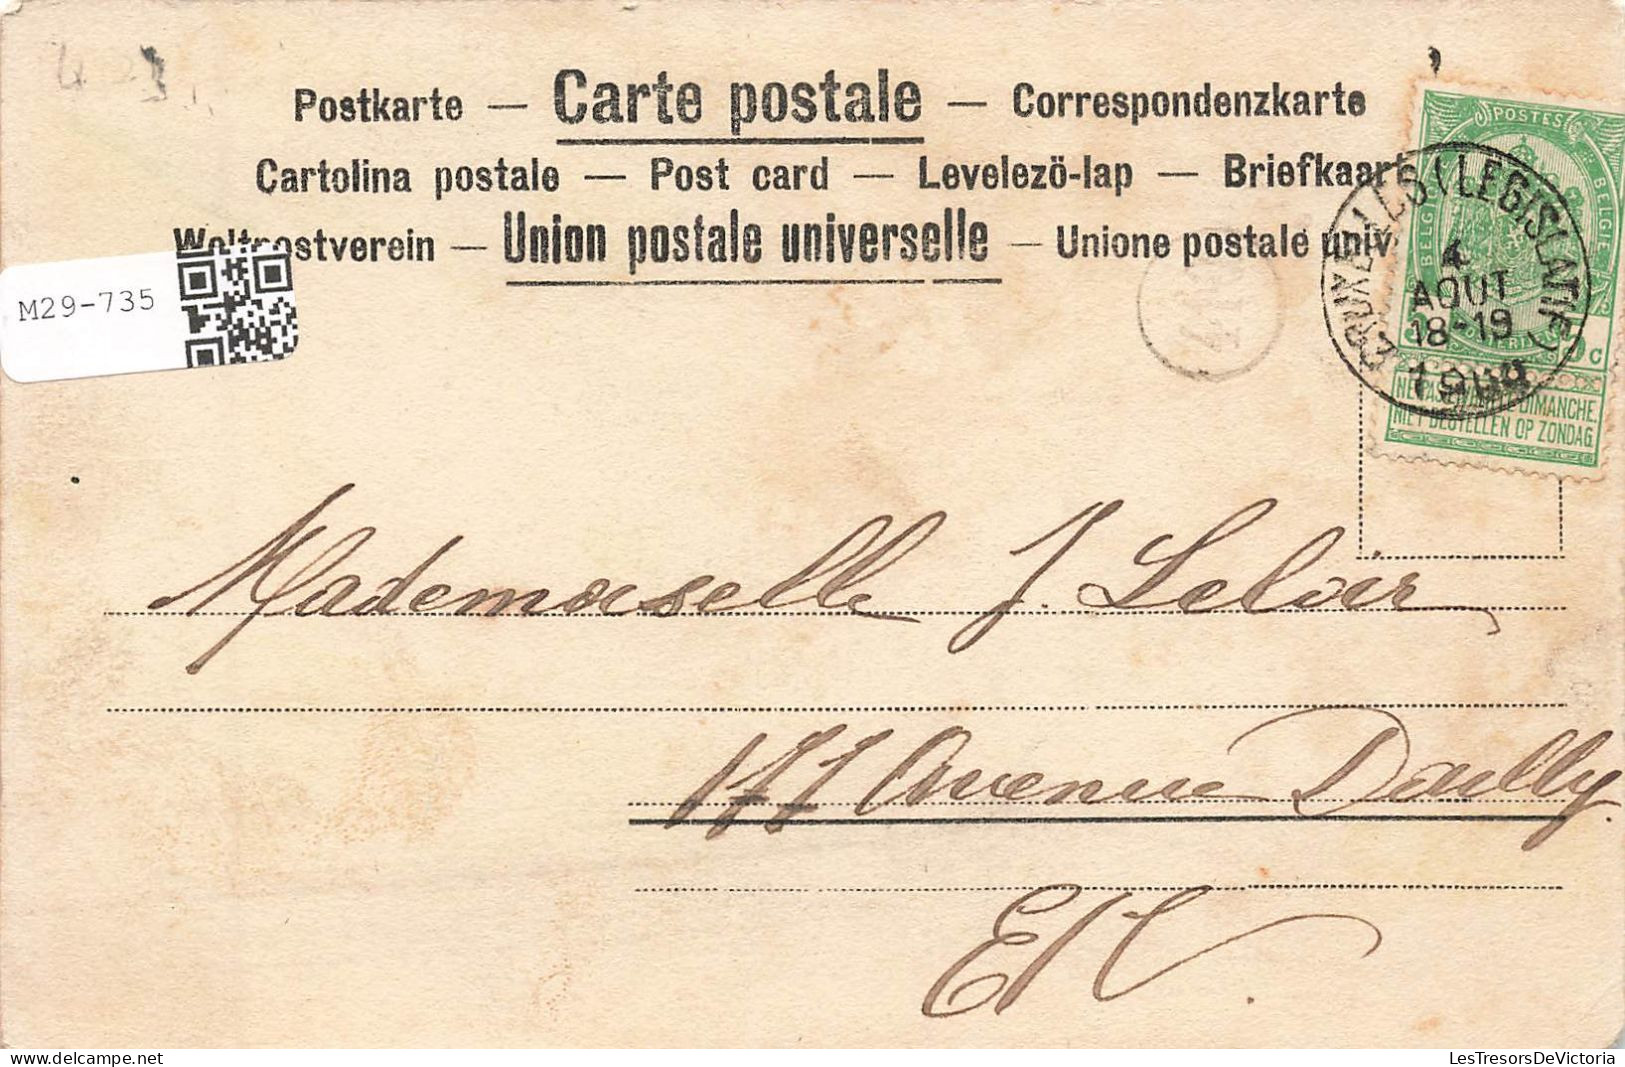 Postkarte — Carte postale — Correspondenzkarte
Cartolina postale — Post card — Levelezö-lap — Briefkaart
Weltpostverein — Union postale universelle — Unione postale univ
M29-735
POSTES
BELGIQUE
BELGIË
BRUXELLES (LEGISLATIF)
4
AOUT
18-19
NE PAS LIVRER LE DIMANCHE.
NIET BESTELLEN OP ZONDAG
Mademoiselle J. Leloir
Avenue Dailly.
E/V.
delcampe.net
LesTresorsDeVictoria